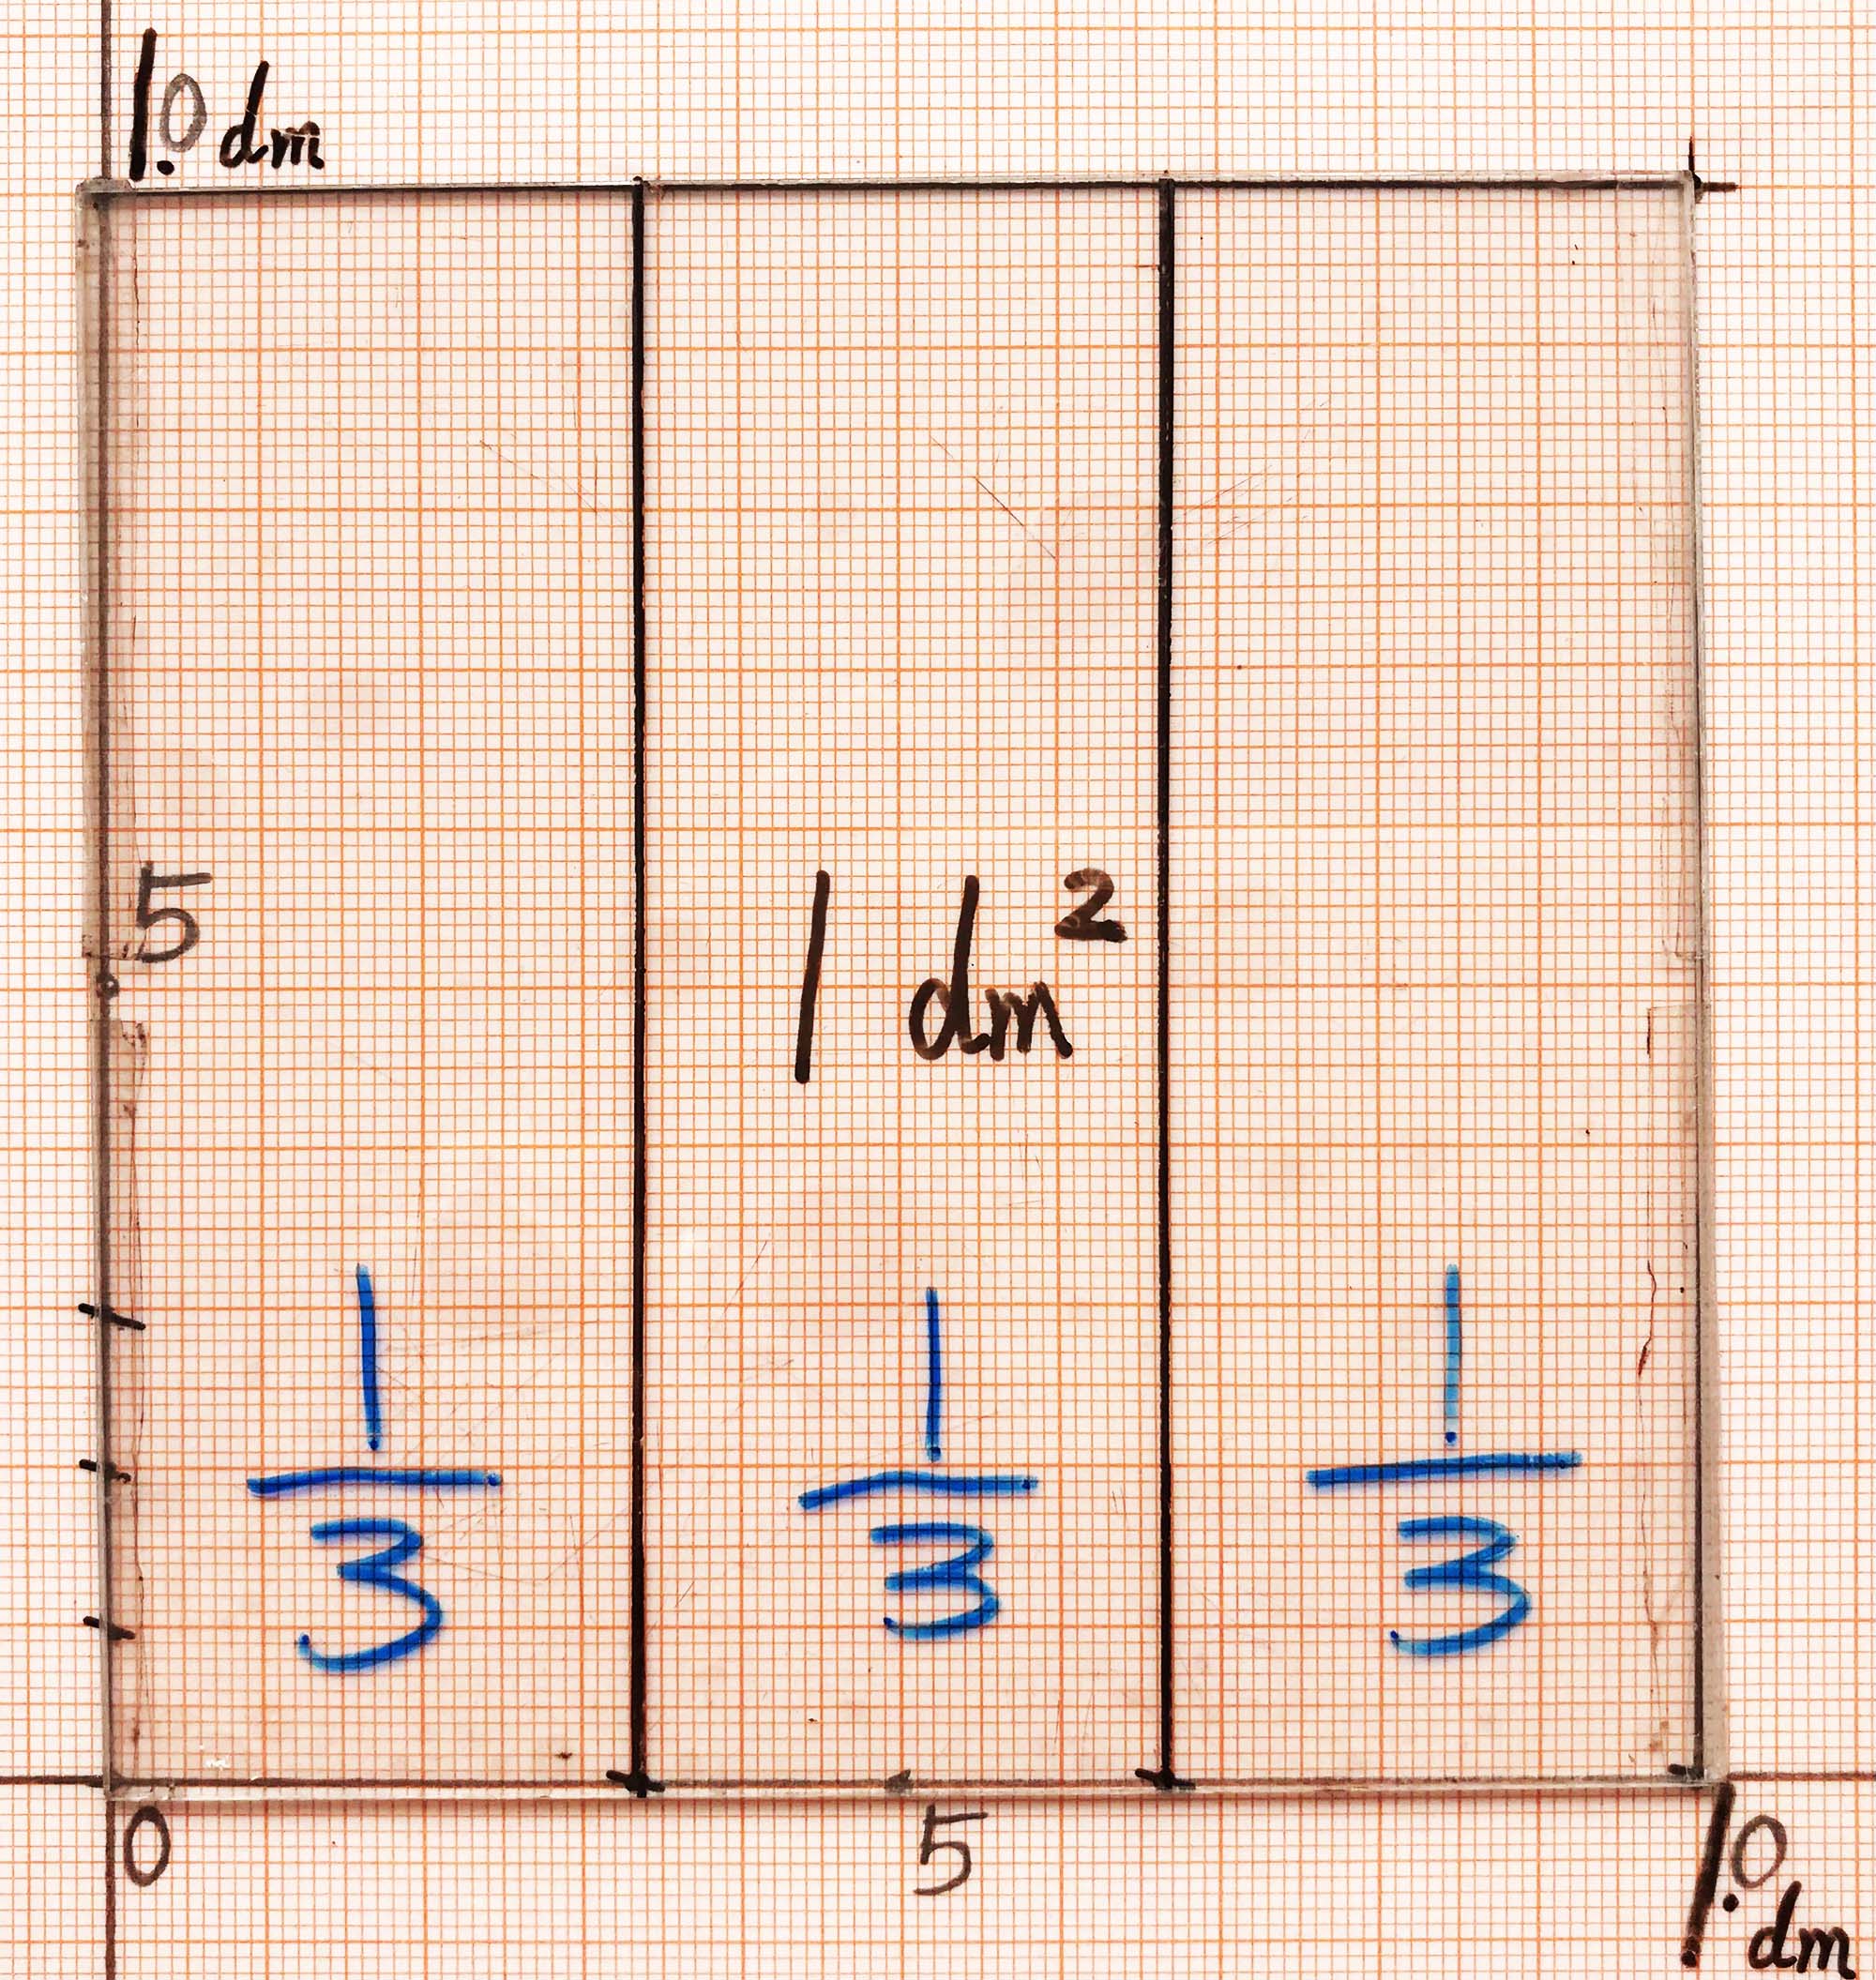 1.0 dm
5
1 dm²
1/3 1/3 1/3
0 5 1.0 dm